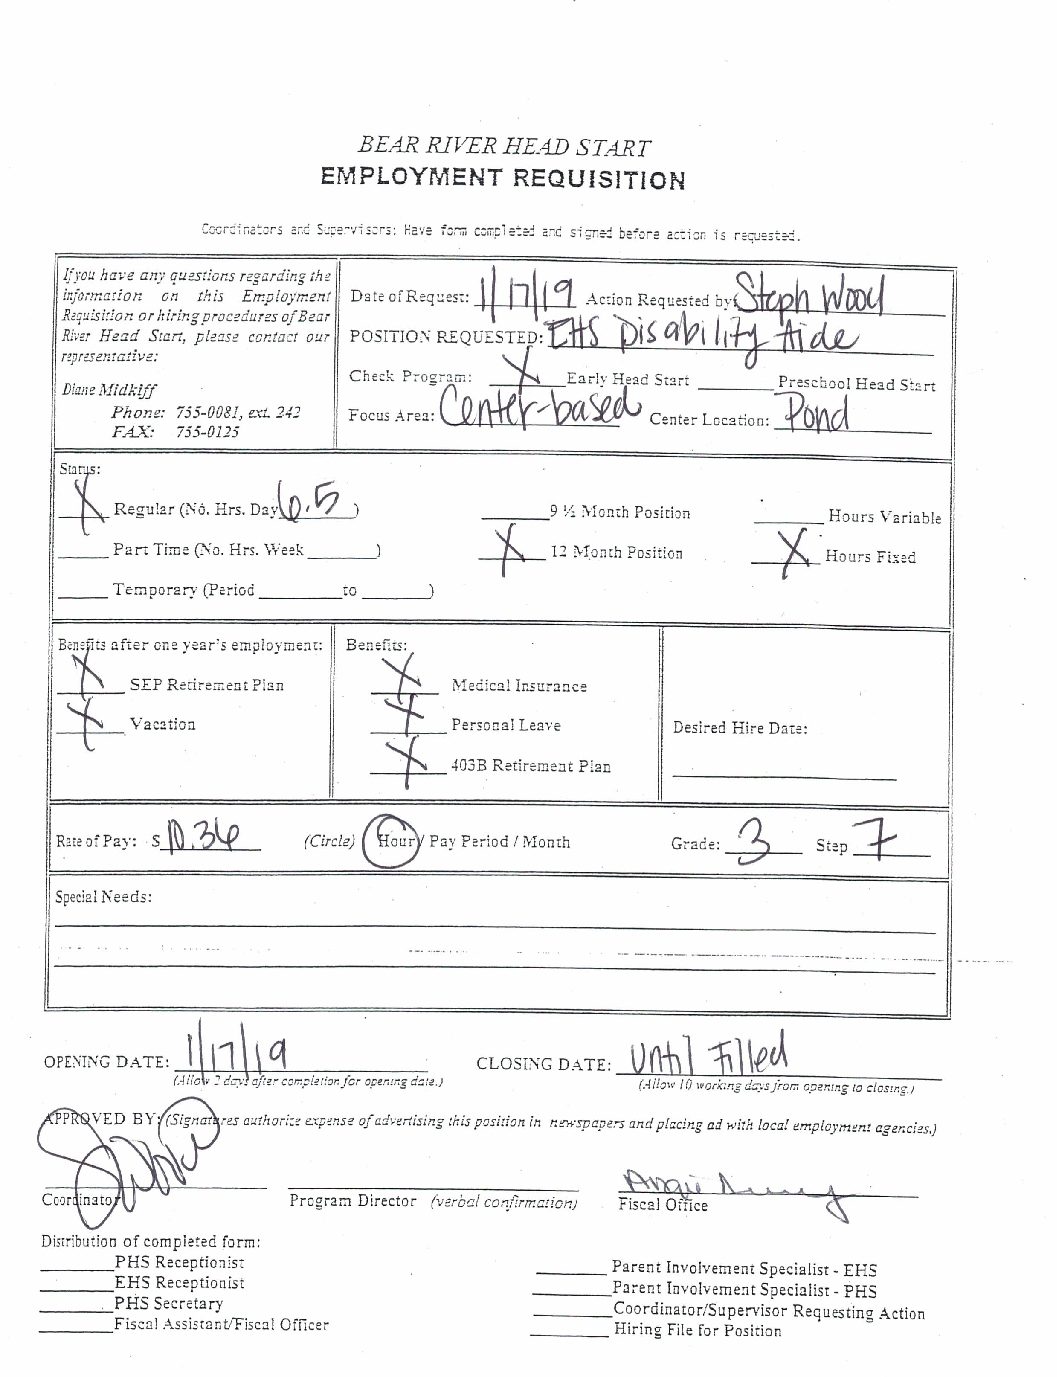 BEAR RIVER HEAD START
EMPLOYMENT REQUISITION
Coordinators and Supervisors: Have form completed and signed before action is requested.
If you have any questions regarding the
information on this Employment
Requisition or hiring procedures of Bear
River Head Start, please contact our
representative:
Diane Midkiff
Phone: 755-0081, ext. 242
FAX: 755-0125
Date of Request: 1/17/19 Action Requested by: Steph Wood
POSITION REQUESTED: EHS Disability Aide
Check Program: X Early Head Start ______ Preschool Head Start
Focus Area: Center-based Center Location: Pond
Status:
X Regular (No. Hrs. Day 6.5 )
______ Part Time (No. Hrs. Week ______)
______ Temporary (Period ______ to ______)
______ 9 ½ Month Position
X 12 Month Position
______ Hours Variable
X Hours Fixed
Benefits after one year's employment:
X SEP Retirement Plan
X Vacation
Benefits:
X Medical Insurance
X Personal Leave
X 403B Retirement Plan
Desired Hire Date:
Rate of Pay: $ 10.36 (Circle) Hour / Pay Period / Month Grade: 3 Step 7
Special Needs:
OPENING DATE: 1/17/19 CLOSING DATE: Until Filled
(Allow 2 days after completion for opening date.) (Allow 10 working days from opening to closing.)
APPROVED BY: (Signatures authorize expense of advertising this position in newspapers and placing ad with local employment agencies.)
Coordinator Program Director (verbal confirmation) Fiscal Office
Distribution of completed form:
______ PHS Receptionist
______ EHS Receptionist
______ PHS Secretary
______ Fiscal Assistant/Fiscal Officer
______ Parent Involvement Specialist - EHS
______ Parent Involvement Specialist - PHS
______ Coordinator/Supervisor Requesting Action
______ Hiring File for Position